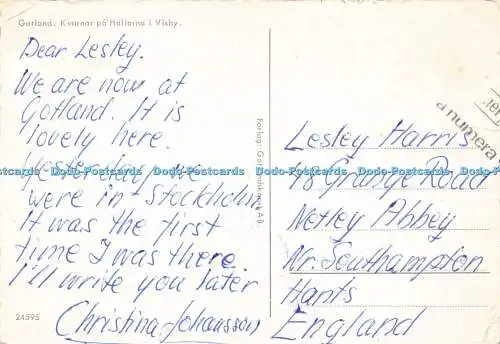 Gotland. Kvarnar på Hällarna i Visby.
Dear Lesley.
We are now at
Gotland. It is
lovely here.
Yesterday we
were in Stockholm
It was the first
time I was there.
I'll write you later
Christina Johansson
24595
Förlag: AB.
a numera
Lesley Harris
48 Grange Road
Netley Abbey
Nr. Southampton
Hants
England
Dodo-Postcards Dodo-Postcards Dodo-Postcards Dodo-Postcards Dodo-Postcards Dodo-Postcards